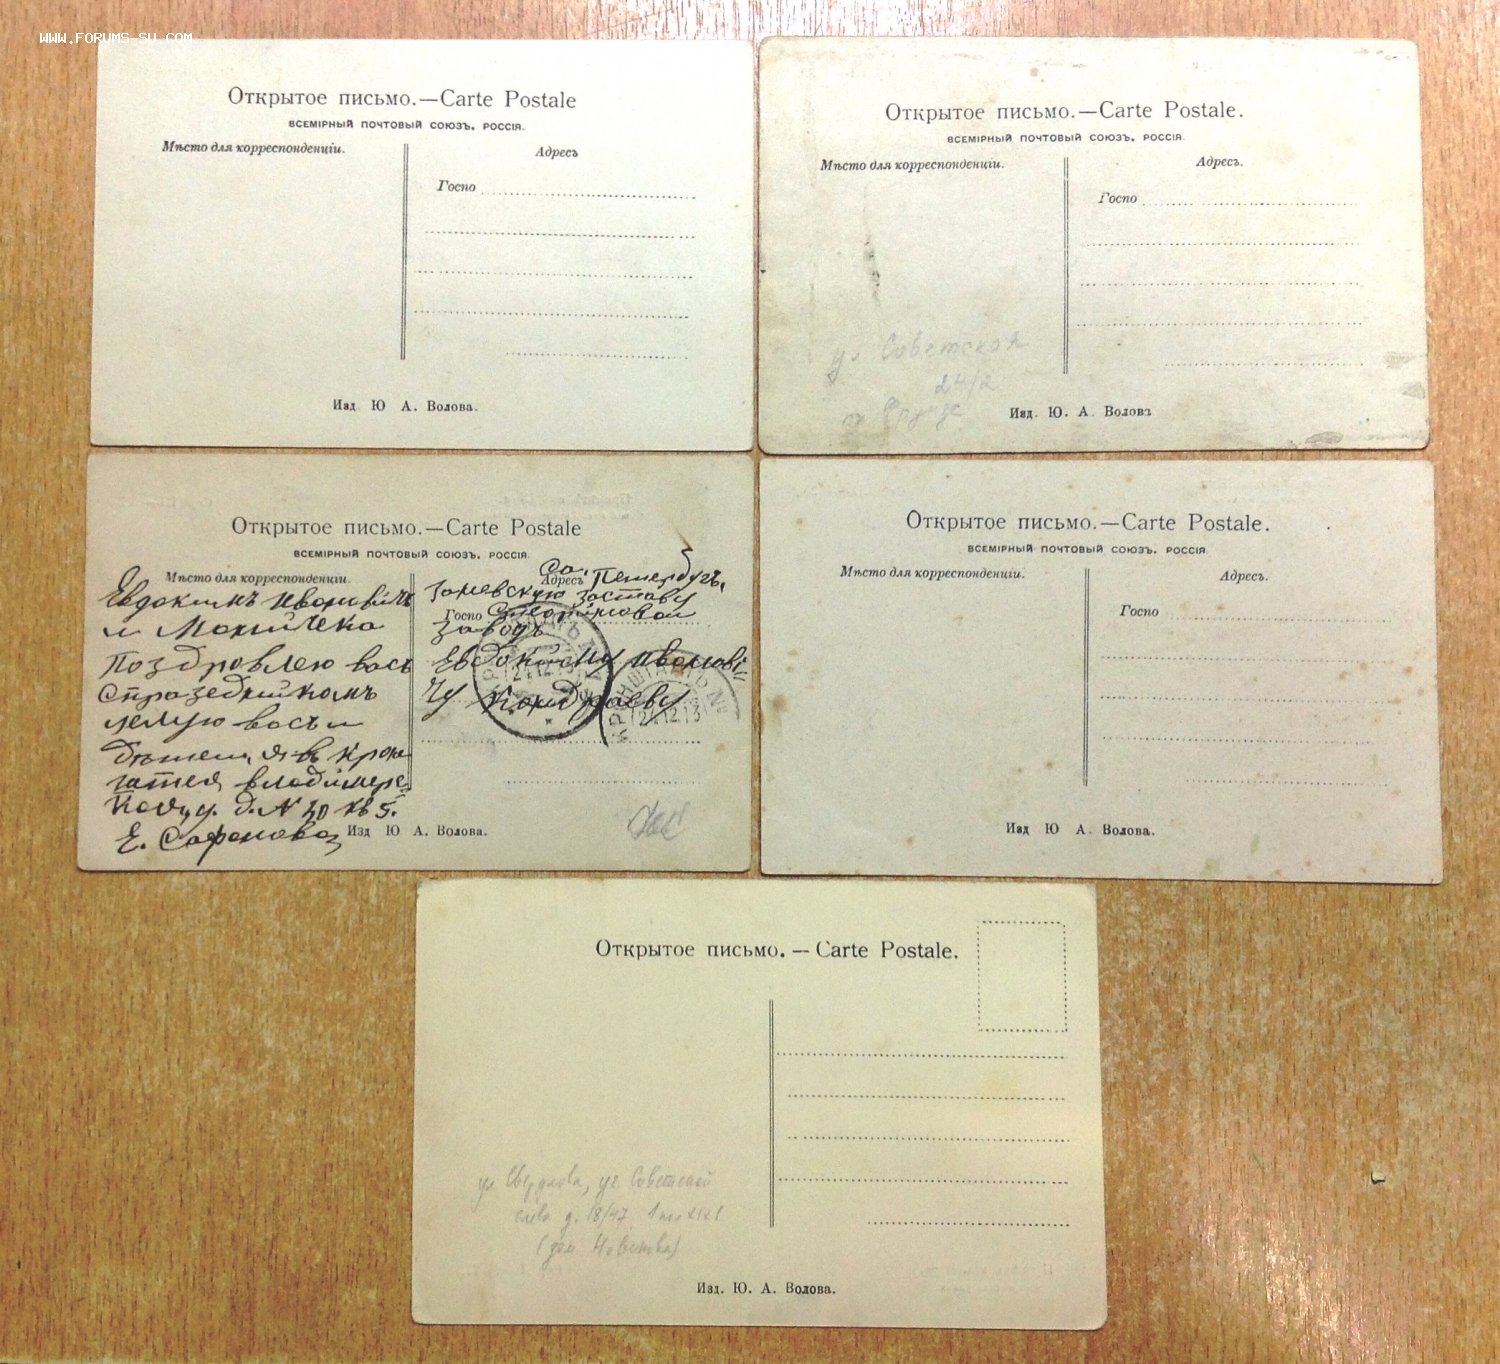 WWW.FORUMS-SU.COM
Открытое письмо.—Carte Postale
ВСЕМІРНЫЙ ПОЧТОВЫЙ СОЮЗЪ. РОССІЯ.
Мѣсто для корреспонденціи.
Адресъ
Госпо
Изд Ю А. Волова.
Открытое письмо.—Carte Postale.
ВСЕМІРНЫЙ ПОЧТОВЫЙ СОЮЗЪ. РОССІЯ.
Мѣсто для корреспонденціи.
Адресъ.
Госпо
ул Советская
24/2
Изд. Ю. А. Волова
Открытое письмо.—Carte Postale
ВСЕМІРНЫЙ ПОЧТОВЫЙ СОЮЗЪ. РОССІЯ
Мѣсто для корреспонденціи.
Евдокимъ Ивановичъ
и
Поздровлею васъ
спраздникомъ
целую васъ и
я въ
д. N 30 кв 5.
Е. Сафонова
Адресъ
Петербугъ,
заставу
Госпо
заводъ
Евдокиму Иванові
чу Кондраеву
Изд Ю А. Волова.
Открытое письмо.—Carte Postale.
ВСЕМІРНЫЙ ПОЧТОВЫЙ СОЮЗЪ. РОССІЯ
Мѣсто для корреспонденціи.
Адресъ.
Госпо
Изд Ю А. Волова.
Открытое письмо. — Carte Postale.
ул Свердлова, уг Советской
слева д. 18/47
(дом
Изд. Ю. А. Волова.